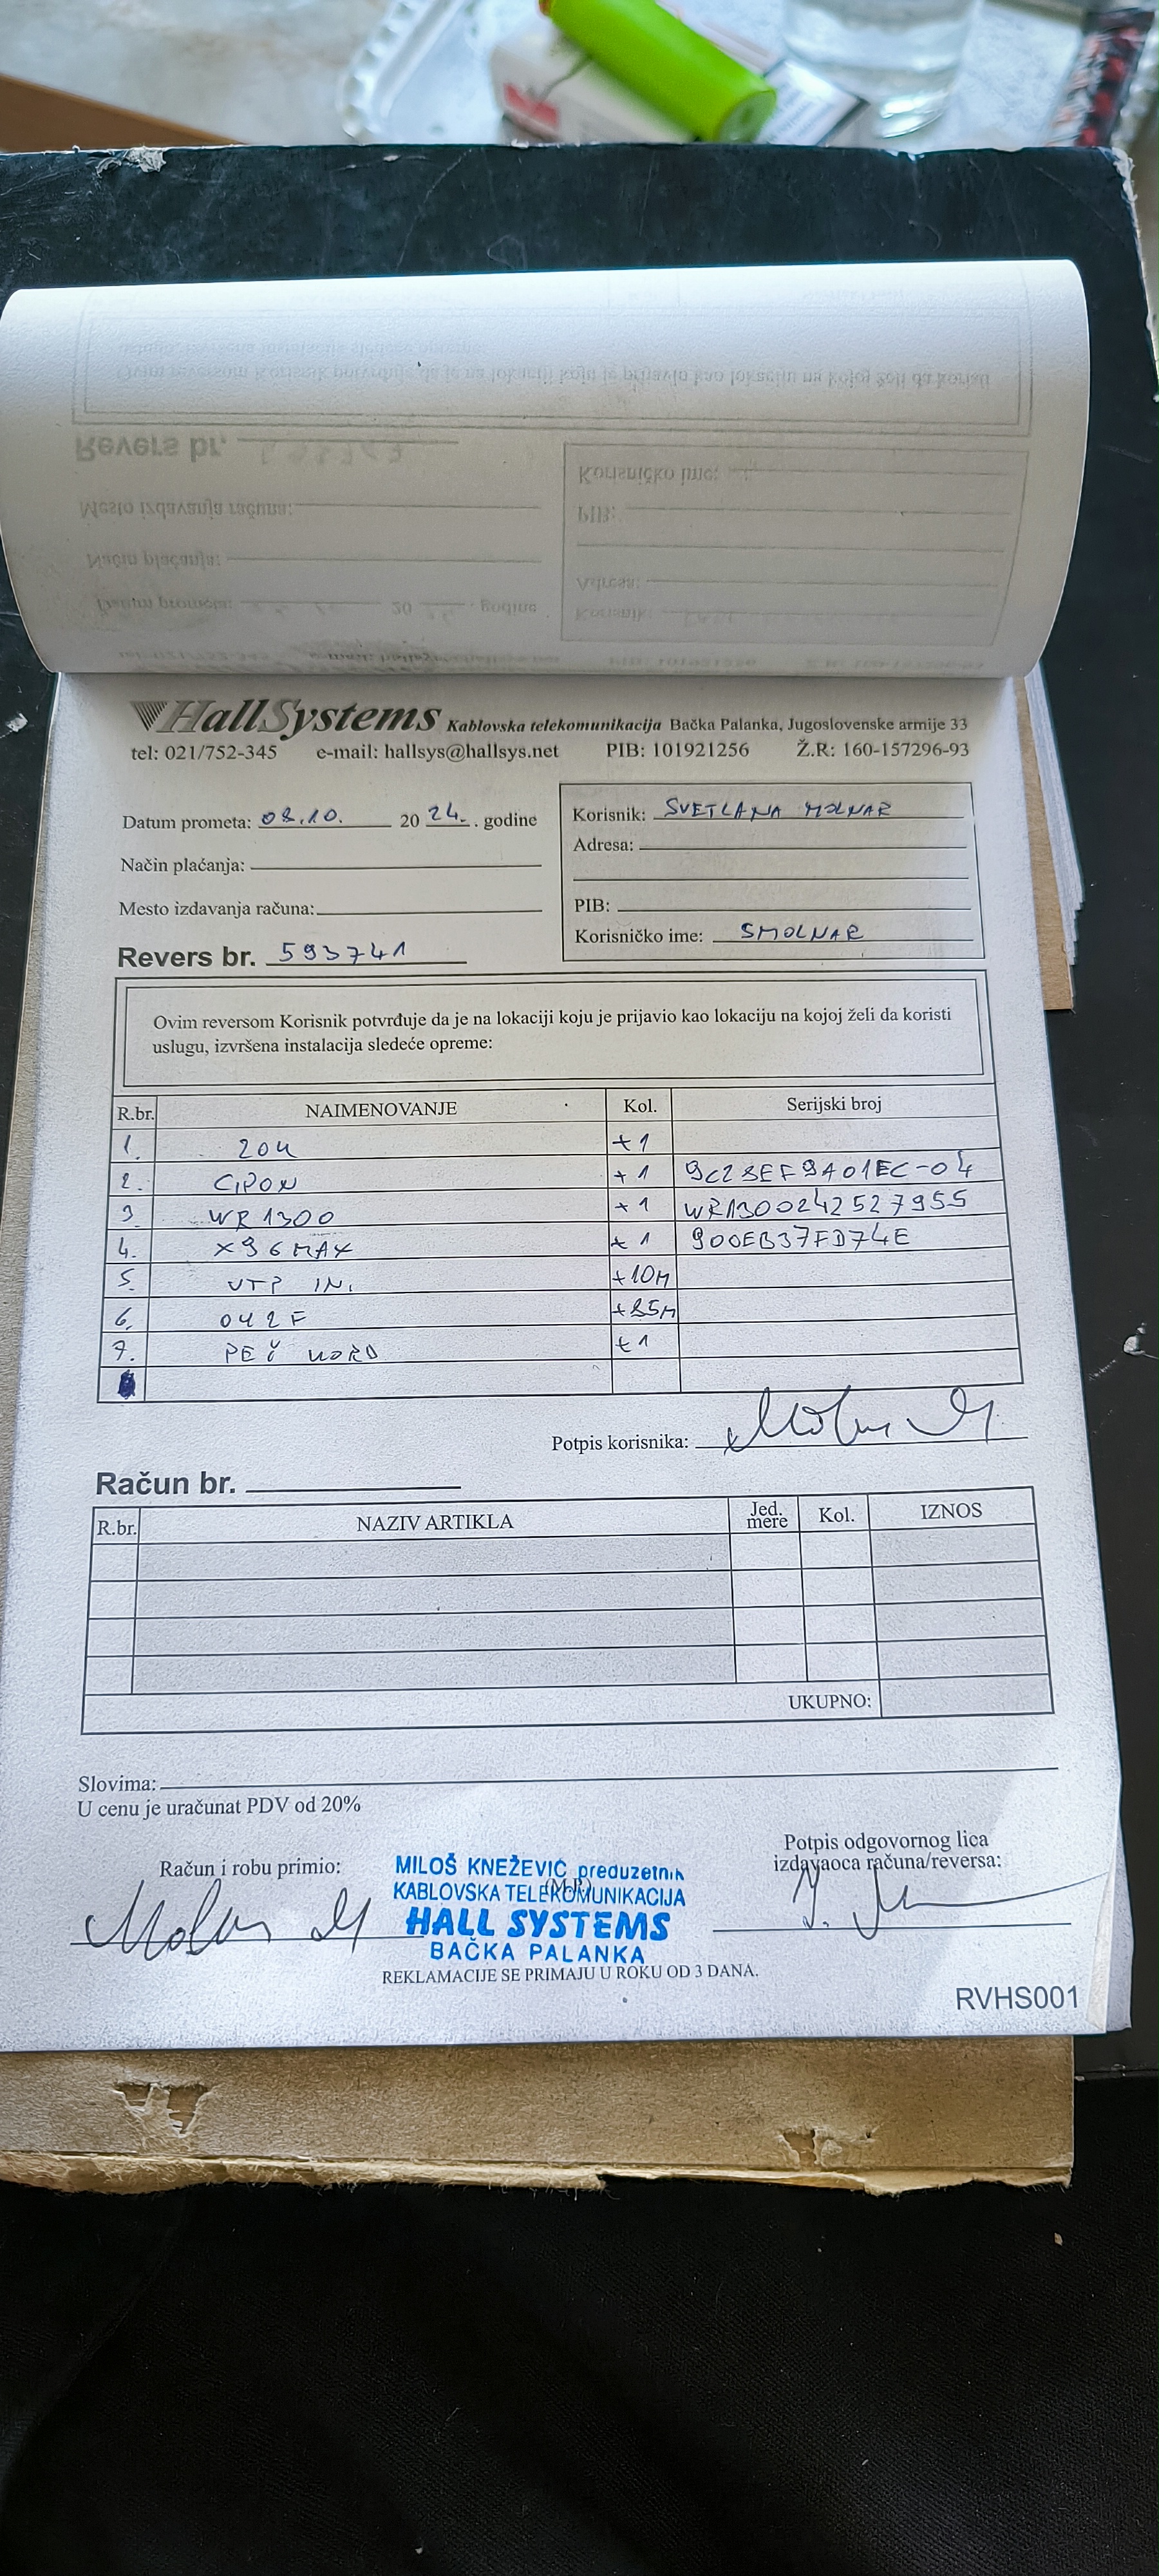 HallSystems Kablovska telekomunikacija Bačka Palanka, Jugoslovenske armije 33
tel: 021/752-345 e-mail: hallsys@hallsys.net PIB: 101921256 Ž.R: 160-157296-93
Datum prometa: 08.10. 2024. . godine
Način plaćanja:
Mesto izdavanja računa:
Revers br. 593741
Korisnik: SVETLANA MOLNAR
Adresa:
PIB:
Korisničko ime: SMOLNAR
Ovim reversom Korisnik potvrđuje da je na lokaciji koju je prijavio kao lokaciju na kojoj želi da koristi
uslugu, izvršena instalacija sledeće opreme:
R.br. NAIMENOVANJE Kol. Serijski broj
1. ZOK +1
2. CIPON +1 9C28EF9A01EC-04
3 WR1300 +1 WR1300242527955
4. X96MAX +1 900EB37FD74E
5. UTP IN. +10M
6. +85M
7. +1
Potpis korisnika:
Račun br.
R.br. NAZIV ARTIKLA Jed. mere Kol. IZNOS
UKUPNO:
Slovima:
U cenu je uračunat PDV od 20%
Račun i robu primio:
MILOŠ KNEŽEVIĆ preduzetnik
(M.P.)
KABLOVSKA TELEKOMUNIKACIJA
HALL SYSTEMS
BAČKA PALANKA
Potpis odgovornog lica
izdavaoca računa/reversa:
REKLAMACIJE SE PRIMAJU U ROKU OD 3 DANA.
RVHS001